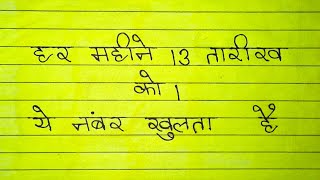 हर महीने 13 तारीख
को ।
ये नंबर खुलता है